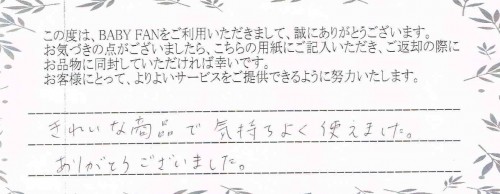 この度は、BABY FANをご利用いただきまして、誠にありがとうございます。
お気づきの点がございましたら、こちらの用紙にご記入いただき、ご返却の際に
お品物に同封していただければ幸いです。
お客様にとって、よりよいサービスをご提供できるように努力いたします。
きれいな商品で気持ちよく使えました。
ありがとうございました。